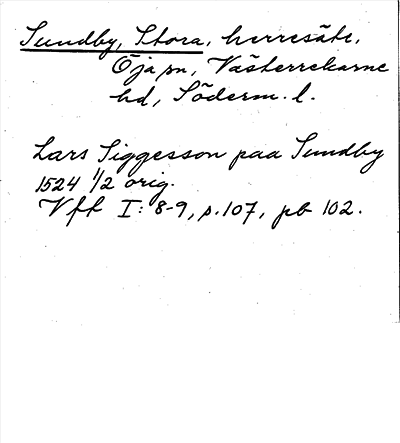 Sundby, Stora, herresäte,
Öja sn, Västerrekarne
hd, Söderm. l.
Lars Siggesson paa Sundby
1524 1/2 orig.
Vff I: 8-9, s. 107, pb 102.